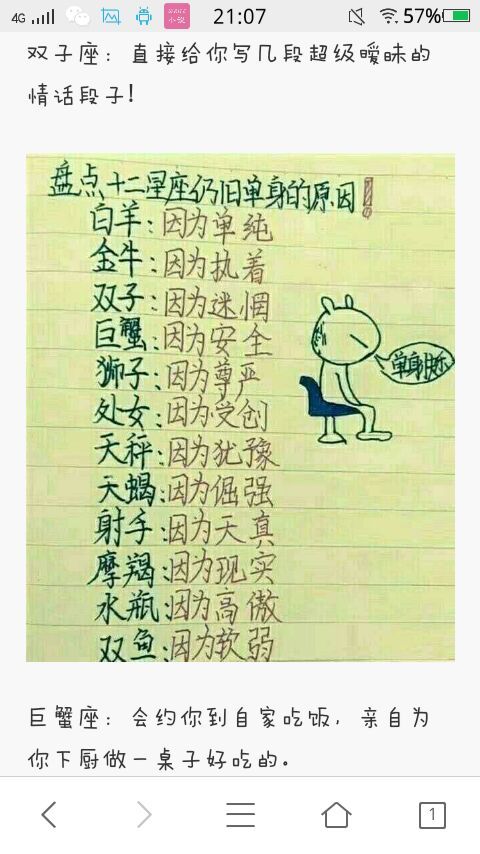 4G
21:07
57%
双子座：直接给你写几段超级暧昧的
情话段子！
盘点十二星座仍旧单身的原因！
白羊：因为单纯
金牛：因为执着
双子：因为迷惘
巨蟹：因为安全
狮子：因为尊严
处女：因为受创
天秤：因为犹豫
天蝎：因为倔强
射手：因为天真
摩羯：因为现实
水瓶：因为高傲
双鱼：因为软弱
巨蟹座：会约你到自家吃饭，亲自为
你下厨做一桌子好吃的。
1